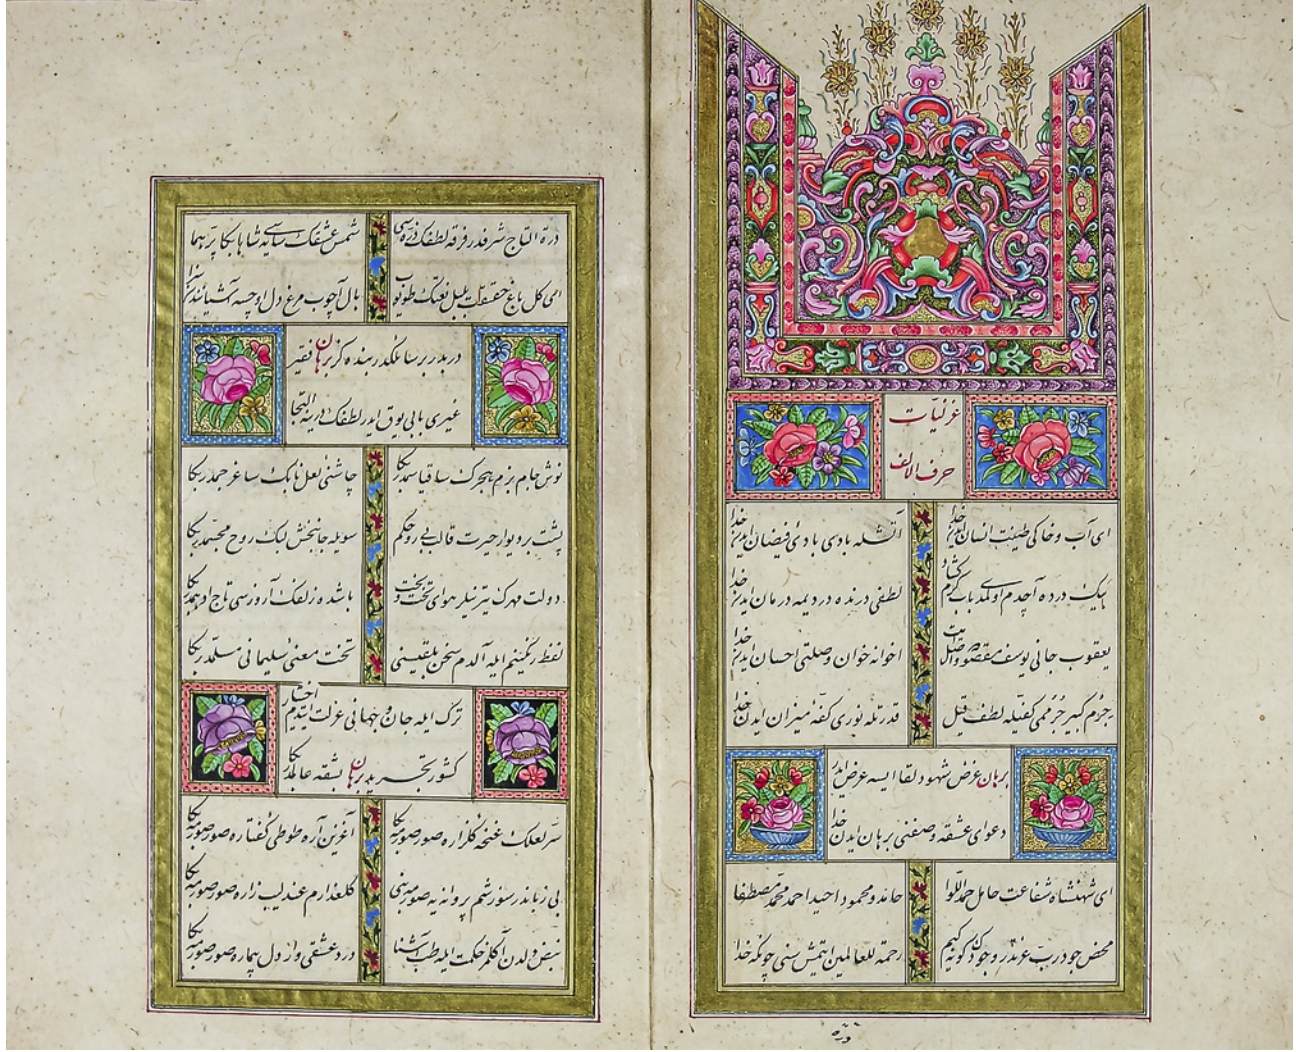 غزلیات
حرف الالف
ای آب و خاکی طینت انسان ایدن خدا آتشله بادی بادی فیضان ایدن خدا
بیک درده آچدم اولمدی باب کرم کشاد لطفی درنده دردیمه درمان ایدن خدا
یعقوب جانی یوسف مقصوده واصل ایت اخوانه خوان وصلتی احسان ایدن خدا
جرم کبیر جرممی لطف قیل قدرتله نوری کفهٔ میزان ایدن خدا
برهان غرض شهود لقا ایسه عرض ایدر
دعوای عشقه وصفنی برهان ایدن خدا
ای شهنشاه شفاعت حامل حمد اللوا حامد و محمود احید احمد محمد مصطفا
محض جود رب عزتدر وجودک کیم رحمة للعالمین ایتمش سنی چونکه خدا
درة
درة التاج شرفدر فرقه لطفک شمس عشقک سایه شاها بکا
ای کل باغ حقیقت بلبل نعتک بال آچوب مرغ دل
دربدر برسائلکدر بنده کز برهان فقیر
غیری بابی یوق ایدر لطفک التجا
نوش جام بزم هجرک ساقیا سمدر بکا چاشنی لعل نابک ساغر جمدر بکا
پشت بر دیوار حیرت قالب بی روحکم سویله جانبخش لبک روح مجسمدر بکا
دولت مهرک نیلر هوای تخت و بخت باشده زلفک آرزوسی تاج ادهمدر بکا
لفظ رنگینم ایله آلدم سخن بلقیسنی تخت معنیء سلیمانی مسلمدر بکا
ترک ایله جان و جهانی عزلت ایتدم اختیار
کشور تجرید برهان بشقه عالمدر بکا
سر لعلک غنچهٔ گلزاره صور صورمه بکا آغزین آره طوطیء گفتاره صور صورمه بکا
بی زباندر سوز شمعم پروانه یه صور صورمه بنی گلعذارم عندلیب زاره صور صورمه بکا
نبض دلدن آکلر حکمت ایله طب آشنا درد عشقی وار دل بیماره صور صورمه بکا